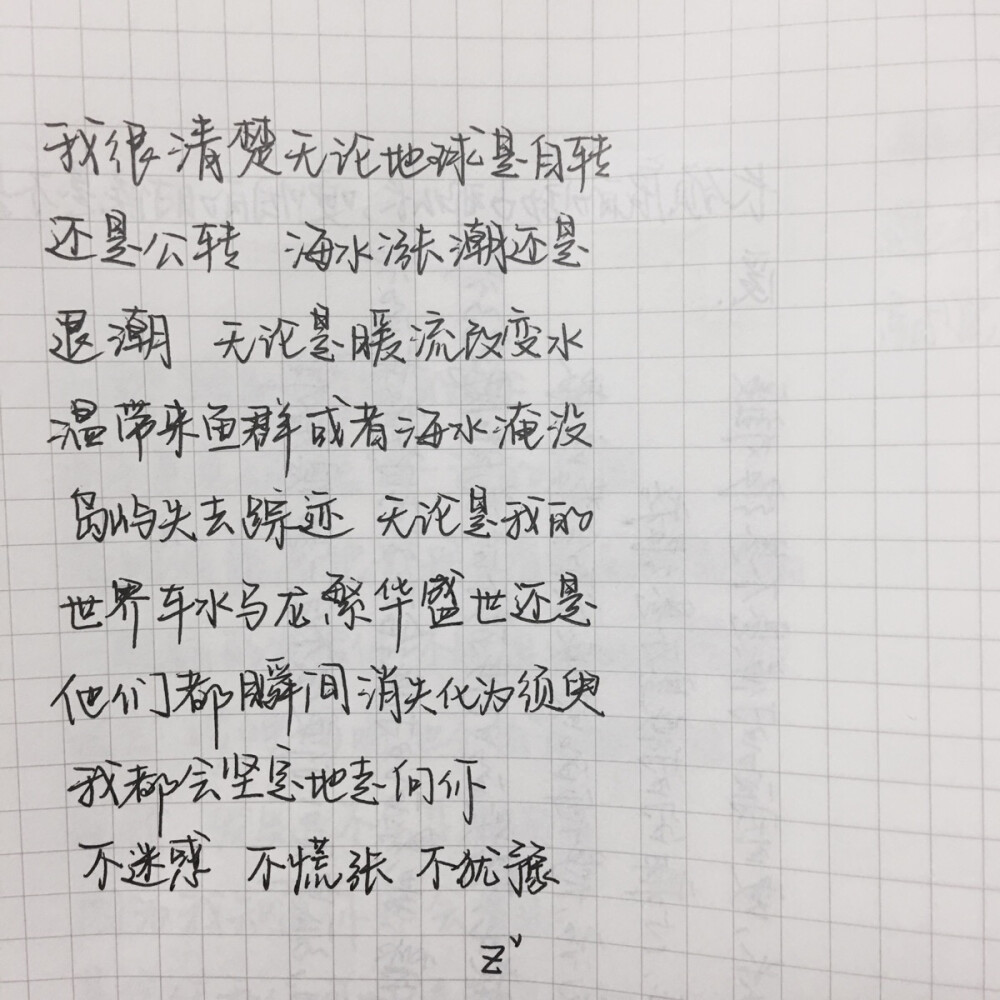 我很清楚无论地球是自转
还是公转 海水涨潮还是
退潮 无论是暖流改变水
温带来鱼群或者海水淹没
岛屿失去踪迹 无论是我的
世界车水马龙繁华盛世还是
他们都瞬间消失化为须臾
我都会坚定地走向你
不迷惑 不慌张 不犹豫
Z